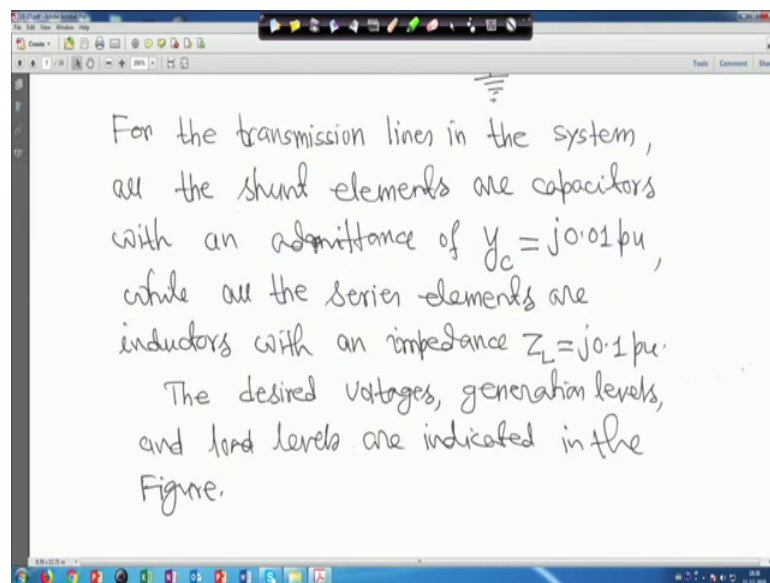 File Edit View Window Help
Create
Tools Comment
For the transmission lines in the system,
all the shunt elements are capacitors
with an admittance of y_c = j0.01 pu,
while all the series elements are
inductors with an impedance Z_L = j0.1 pu.
The desired voltages, generation levels,
and load levels are indicated in the
Figure.